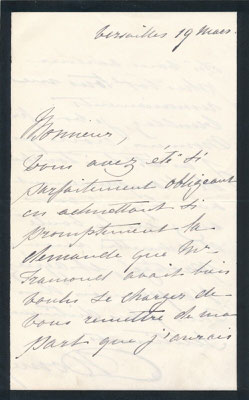 Versailles 19 Mars.
Monsieur,
Vous avez été si
parfaitement obligeant
en admettant si
promptement la
demande que Mr
Framond avait bien
voulu se charger de
vous remettre de ma
part que j'aurais